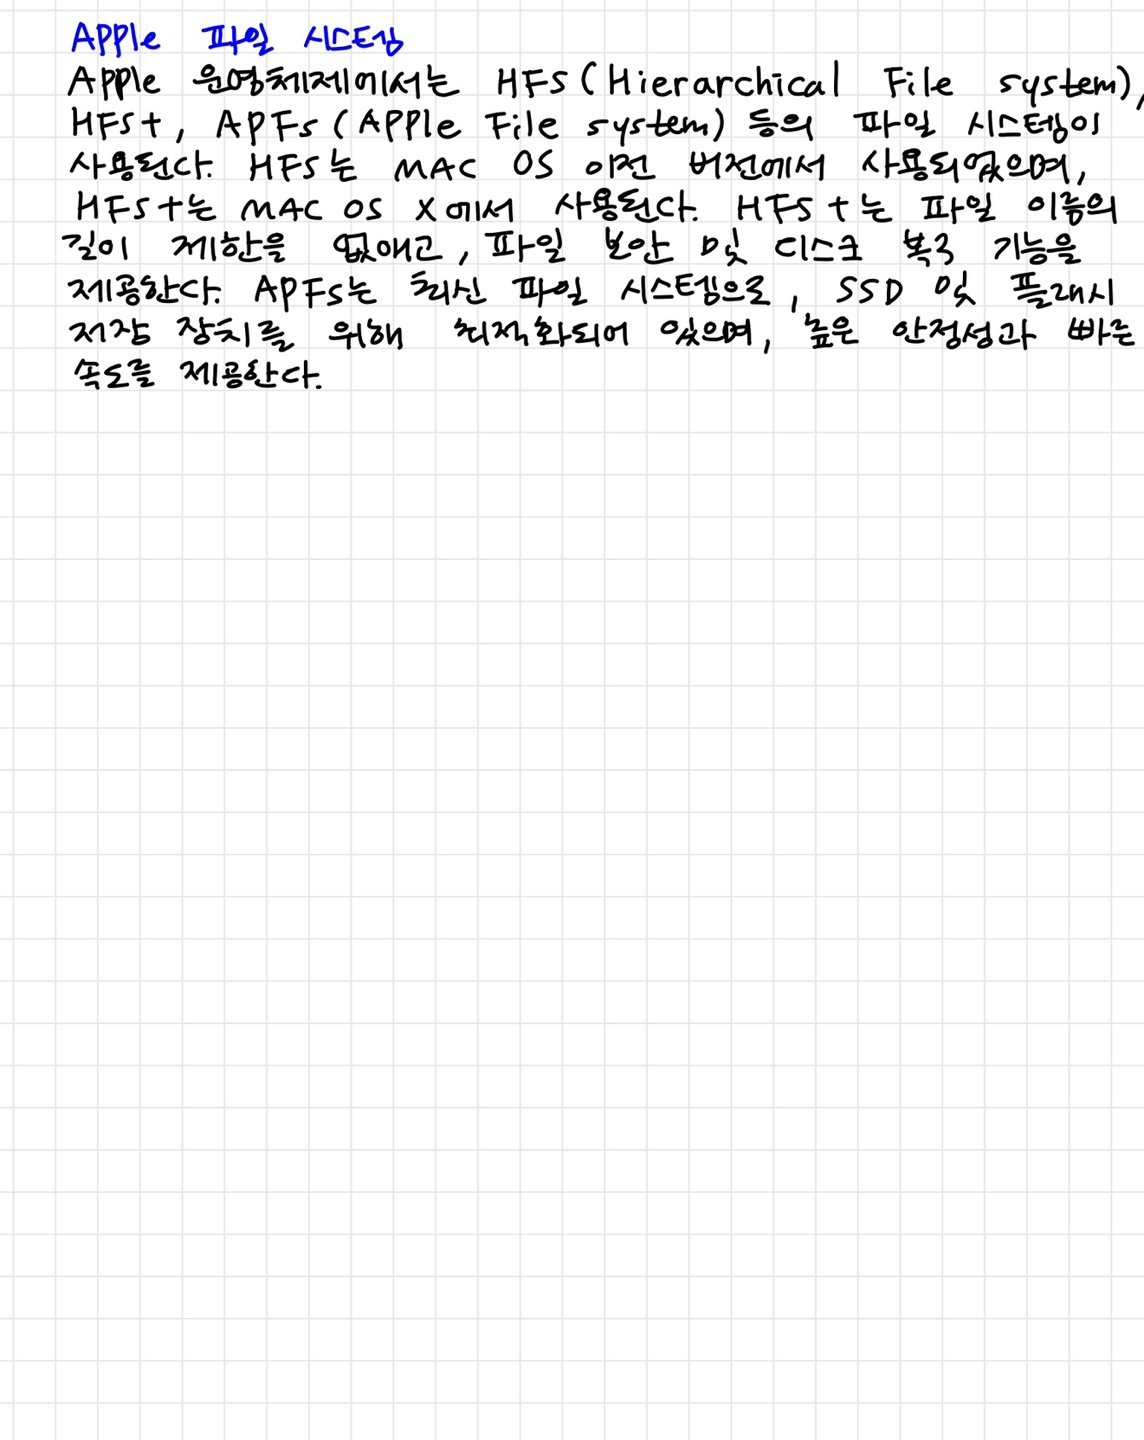 Apple 파일 시스템
Apple 운영체제에서는 HFS (Hierarchical File system),
HFS+, APFS (APPle File system) 등의 파일 시스템이
사용된다. HFS는 MAC OS 이전 버전에서 사용되었으며,
HFS+는 MAC OS X에서 사용된다. HFS+는 파일 이름의
길이 제한을 없애고, 파일 보안 및 디스크 복구 기능을
제공한다. APFS는 최신 파일 시스템으로, SSD 및 플래시
저장 장치를 위해 최적화되어 있으며, 높은 안정성과 빠른
속도를 제공한다.